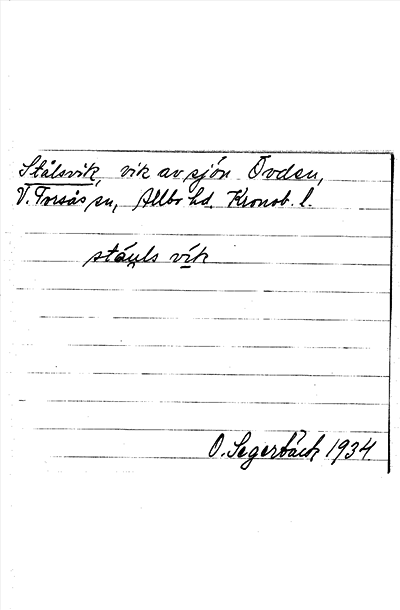 Stålsvik, vik av sjön Övden,
V. Torsås sn, Allbo hd. Kronob. l.
stáu̯ls vík
O. Segerbäck 1934.